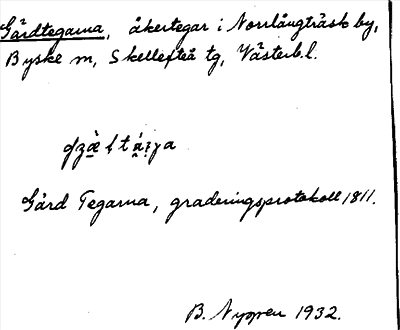 Gårdtegarna, åkertegar i Norrlångträsk by,
Byske sn, Skellefteå tg, Västerb.l.
Gård Tegarna, graderingsprotokoll 1811.
B. Nygren 1932.